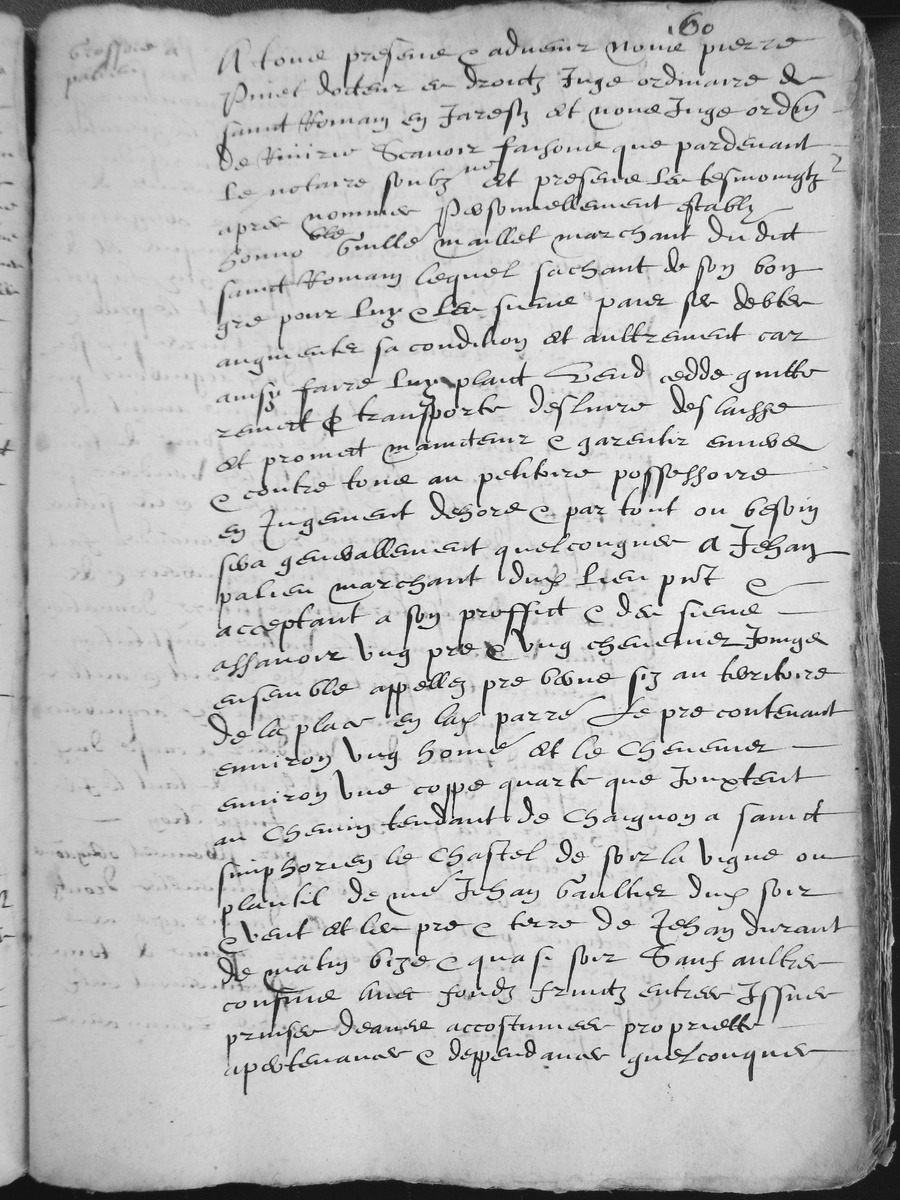 160
Grossoie a
palien
A tous presens & advenir nous pierre
Pinel docteur es droictz Juge ordinaire de
sainct Romain en Jarestz et nous Juge ordin
de Rivirie Scavoir faisons que pardevant
le notaire soubz ne et presens les tesmoingtz
apres nommes Personnellement establz
honno ble Guille maillet marchant dudict
sainct Romain lequel sachant de son bon
gre pour luy & les siens paier ses debtes
augmenter sa condition et aultrement car
ainsy faire luy plaict Vend cedde quitte
remect & transporte deslivre deslaisse
et promect maintenir & garentir envers
& contre tous au petitoire possessoire
en Jugement dehors & par tout ou besoin
sera generallement quelconques A Jehan
palien marchant dud lieu pnt &
acceptant a son proffict & des siens
assavoir ung pre & ung chenevier Joinges
ensemble appellez pre sis au territoire
de la place en lad parre Le pre contenant
environ ung home et le Chenevier
environ une coppe quarte que Jouxtent
au Chemin tendant de Chaignon a sainct
simphorien le Chastel de soir la vigne ou
plantil de me Jehan Gaultier dud soir
& vent et les pre & terre de Jehan durant
de matin bize & quasi soir Sauf aultres
confins avec fondz fruictz entrees Issues
prinses deaues accostumees proprietes
apertenances & deppendances quelconques